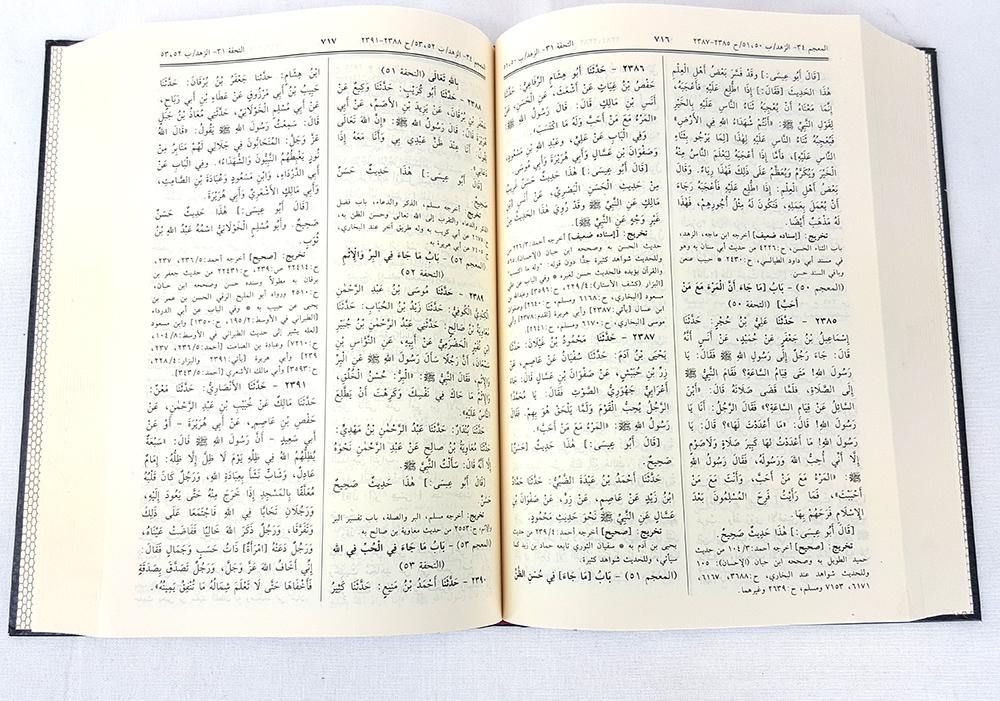 المعجم ٣٤- الزهد/ب ٥١،٥٠/ح ٢٣٨٥-٢٣٨٧
٧١٦
التحفة ٣١- الزهد/ب ٥١،٥٠
[قَالَ أَبُو عِيسَى:] وَقَدْ فَسَّرَ بَعْضُ أَهْلِ الْعِلْمِ
هٰذَا الْحَدِيثَ [فَقَالَ:] إِذَا اطُّلِعَ عَلَيْهِ فَأَعْجَبَهُ،
إِنَّمَا مَعْنَاهُ أَنْ يُعْجِبَهُ ثَنَاءُ النَّاسِ عَلَيْهِ بِالْخَيْرِ
لِقَوْلِ النَّبِيِّ ﷺ: «أَنْتُمْ شُهَدَاءُ اللهِ فِي الْأَرْضِ»
فَيُعْجِبُهُ ثَنَاءُ النَّاسِ عَلَيْهِ لِهٰذَا [لِمَا يَرْجُو بِثَنَاءِ
النَّاسِ عَلَيْهِ]، فَأَمَّا إِذَا أَعْجَبَهُ لِيَعْلَمَ النَّاسُ مِنْهُ
الْخَيْرَ وَيُكْرَمَ وَيُعَظَّمَ عَلَى ذَلِكَ فَهٰذَا رِيَاءٌ. وَقَالَ
بَعْضُ أَهْلِ الْعِلْمِ: إِذَا اطُّلِعَ عَلَيْهِ فَأَعْجَبَهُ رَجَاءَ
أَنْ يُعْمَلَ بِعَمَلِهِ، فَتَكُونَ لَهُ مِثْلُ أُجُورِهِمْ، فَهٰذَا
لَهُ مَذْهَبٌ أَيْضًا.
تخريج: [إسناده ضعيف] أخرجه ابن ماجه، الزهد،
باب الثناء الحسن، ح:٤٢٢٦ من حديث أبي سنان به وهو
في مسند أبي داود الطيالسي، ح:٢٤٣٠ * حبيب عنعن
وباقي السند حسن.
(المعجم ٥٠) - بَابُ [مَا جَاءَ أَنَّ الْمَرْءَ مَعَ مَنْ
أَحَبَّ] (التحفة ٥٠)
٢٣٨٥ - حَدَّثَنَا عَلِيُّ بْنُ حُجْرٍ: حَدَّثَنَا
إِسْمَاعِيلُ بْنُ جَعْفَرٍ عَنْ حُمَيْدٍ، عَنْ أَنَسٍ أَنَّهُ
قَالَ: جَاءَ رَجُلٌ إِلَى رَسُولِ اللهِ ﷺ فَقَالَ: يَا
رَسُولَ اللهِ! مَتَى قِيَامُ السَّاعَةِ؟ فَقَامَ النَّبِيُّ ﷺ
إِلَى الصَّلَاةِ، فَلَمَّا قَضَى صَلَاتَهُ قَالَ: «أَيْنَ
السَّائِلُ عَنْ قِيَامِ السَّاعَةِ؟» فَقَالَ الرَّجُلُ: أَنَا يَا
رَسُولَ اللهِ! قَالَ: «مَا أَعْدَدْتَ لَهَا؟» قَالَ: يَا
رَسُولَ اللهِ! مَا أَعْدَدْتُ لَهَا كَبِيرَ صَلَاةٍ وَلَا صَوْمٍ
إِلَّا أَنِّي أُحِبُّ اللهَ وَرَسُولَهُ، فَقَالَ رَسُولُ اللهِ
ﷺ: «الْمَرْءُ مَعَ مَنْ أَحَبَّ، وَأَنْتَ مَعَ مَنْ
أَحْبَبْتَ». فَمَا رَأَيْتُ فَرِحَ الْمُسْلِمُونَ بَعْدَ
الْإِسْلَامِ فَرَحَهُمْ بِهَا.
[قَالَ أَبُو عِيسَى:] هٰذَا حَدِيثٌ صَحِيحٌ.
تخريج: [صحيح] أخرجه أحمد:٣/١٠٤ من حديث
حميد الطويل به وصححه ابن حبان (الإحسان):١٠٥
وللحديث شواهد عند البخاري، ح:٣٦٨٨، ٦١٦٧،
٦١٧١، ٧١٥٣ ومسلم، ح:٢٦٣٩ وغيرهما.
٢٣٨٦ - حَدَّثَنَا أَبُو هِشَامٍ الرِّفَاعِيُّ: حَدَّثَنَا
حَفْصُ بْنُ غِيَاثٍ عَنْ أَشْعَثَ، عَنِ الْحَسَنِ، عَنْ
أَنَسِ بْنِ مَالِكٍ قَالَ: قَالَ رَسُولُ اللهِ ﷺ:
«الْمَرْءُ مَعَ مَنْ أَحَبَّ وَلَهُ مَا اكْتَسَبَ».
وَفِي الْبَابِ عَنْ عَلِيٍّ، وَعَبْدِ اللهِ بْنِ مَسْعُودٍ
وَصَفْوَانَ بْنِ عَسَّالٍ وَأَبِي هُرَيْرَةَ وَأَبِي مُوسَى.
[قَالَ أَبُو عِيسَى:] هٰذَا حَدِيثٌ حَسَنٌ غَرِيبٌ
مِنْ حَدِيثِ الْحَسَنِ الْبَصْرِيِّ، عَنْ أَنَسِ بْنِ
مَالِكٍ عَنِ النَّبِيِّ ﷺ، وَقَدْ رُوِيَ هٰذَا الْحَدِيثُ مِنْ
غَيْرِ وَجْهٍ عَنِ [النَّبِيِّ ﷺ].
تخريج: [إسناده ضعيف] أخرجه أحمد:٣/٢٢٦ من
حديث الحسن به وصححه ابن حبان (الإحسان):
وللحديث شواهد كثيرة جدًّا دون قوله: "وله ما اكتسب"
والقرآن يؤيده فالحديث حسن لغيره * وفي الباب عن علي
[البزار (كشف الأستار):٤/٢٢٩، ح:٣٥٩٦] وعبدالله بن
مسعود [البخاري، ح:٦١٦٨ ومسلم، ح:٢٦٤٠] وصفوان بن
عسال [يأتي:٢٣٨٧] وأبي هريرة [تقدم:] وأبي
موسى [البخاري، ح:٦١٧٠ ومسلم، ح:٢٦٤١].
٢٣٨٧ - حَدَّثَنَا مَحْمُودُ بْنُ غَيْلَانَ: حَدَّثَنَا
يَحْيَى بْنُ آدَمَ: حَدَّثَنَا سُفْيَانُ عَنْ عَاصِمٍ، عَنْ
زِرِّ بْنِ حُبَيْشٍ، عَنْ صَفْوَانَ بْنِ عَسَّالٍ قَالَ: جَاءَ
أَعْرَابِيٌّ جَهْوَرِيُّ الصَّوْتِ فَقَالَ: يَا مُحَمَّدُ!
الرَّجُلُ يُحِبُّ الْقَوْمَ وَلَمَّا يَلْحَقْ هُوَ بِهِمْ. فَقَالَ
رَسُولُ اللهِ ﷺ: «الْمَرْءُ مَعَ مَنْ أَحَبَّ».
[قَالَ أَبُو عِيسَى:] هٰذَا حَدِيثٌ [حَسَنٌ]
صَحِيحٌ.
حَدَّثَنَا أَحْمَدُ بْنُ عَبْدَةَ الضَّبِّيُّ: حَدَّثَنَا حَمَّادُ
ابْنُ زَيْدٍ عَنْ عَاصِمٍ، عَنْ زِرٍّ، عَنْ صَفْوَانَ بْنِ
عَسَّالٍ عَنِ النَّبِيِّ ﷺ نَحْوَ حَدِيثِ مَحْمُودٍ.
تخريج: [صحيح] أخرجه أحمد:٤/٢٣٩ من حديث
يحيى بن آدم به * سفيان الثوري تابعه حماد بن زيد كما
سيأتي، وللحديث شواهد كثيرة.
(المعجم ٥١) - بَابُ [مَا جَاءَ] فِي حُسْنِ الظَّنِّ
المعجم ٣٤- الزهد/ب ٥٣،٥٢/ح ٢٣٨٨-٢٣٩١
٧١٧
التحفة ٣١- الزهد/ب ٥٣،٥٢
بِاللهِ تَعَالَى (التحفة ٥١)
٢٣٨٨ - حَدَّثَنَا أَبُو كُرَيْبٍ: حَدَّثَنَا وَكِيعٌ عَنْ
جَعْفَرِ بْنِ بُرْقَانَ، عَنْ يَزِيدَ بْنِ الْأَصَمِّ، عَنْ أَبِي
هُرَيْرَةَ قَالَ: قَالَ رَسُولُ اللهِ ﷺ: «إِنَّ اللهَ تَعَالَى
يَقُولُ: أَنَا عِنْدَ ظَنِّ عَبْدِي بِي وَأَنَا مَعَهُ إِذَا
دَعَانِي».
[قَالَ أَبُو عِيسَى:] هٰذَا حَدِيثٌ حَسَنٌ
صَحِيحٌ.
تخريج: أخرجه مسلم، الذكر والدعاء، باب فضل
الذكر والدعاء، والتقرب إلى الله تعالى وحسن الظن به،
ح: عن أبي كريب به وله طريق آخر عند البخاري،
ح: عن أبي هريرة به.
(المعجم ٥٢) - بَابُ مَا جَاءَ فِي الْبِرِّ وَالْإِثْمِ
(التحفة ٥٢)
٢٣٨٩ - حَدَّثَنَا مُوسَى بْنُ عَبْدِ الرَّحْمٰنِ
الْكِنْدِيُّ الْكُوفِيُّ: حَدَّثَنَا زَيْدُ بْنُ الْحُبَابِ: حَدَّثَنَا
مُعَاوِيَةُ بْنُ صَالِحٍ: حَدَّثَنِي عَبْدُ الرَّحْمٰنِ بْنُ جُبَيْرِ
بْنِ نُفَيْرٍ الْحَضْرَمِيُّ عَنْ أَبِيهِ، عَنِ النَّوَّاسِ بْنِ
سَمْعَانَ، أَنَّ رَجُلًا سَأَلَ رَسُولَ اللهِ ﷺ عَنِ الْبِرِّ
وَالْإِثْمِ، فَقَالَ النَّبِيُّ ﷺ: «الْبِرُّ: حُسْنُ الْخُلُقِ،
وَالْإِثْمُ مَا حَاكَ فِي نَفْسِكَ وَكَرِهْتَ أَنْ يَطَّلِعَ
النَّاسُ عَلَيْهِ».
حَدَّثَنَا بُنْدَارٌ: حَدَّثَنَا عَبْدُ الرَّحْمٰنِ بْنُ مَهْدِيٍّ:
حَدَّثَنَا مُعَاوِيَةُ بْنُ صَالِحٍ عَنْ عَبْدِ الرَّحْمٰنِ نَحْوَهُ
إِلَّا أَنَّهُ قَالَ: سَأَلْتُ النَّبِيَّ ﷺ.
[قَالَ أَبُو عِيسَى:] هٰذَا حَدِيثٌ صَحِيحٌ
حَسَنٌ.
تخريج: أخرجه مسلم، البر والصلة، باب تفسير البر
والإثم، ح:٢٥٥٣ من حديث معاوية بن صالح به.
(المعجم ٥٣) - بَابُ مَا جَاءَ فِي الْحُبِّ فِي اللهِ
(التحفة ٥٣)
٢٣٩٠ - حَدَّثَنَا أَحْمَدُ بْنُ مَنِيعٍ: حَدَّثَنَا كَثِيرُ
ابْنُ هِشَامٍ: حَدَّثَنَا جَعْفَرُ بْنُ بُرْقَانَ: حَدَّثَنَا
حَبِيبُ بْنُ أَبِي مَرْزُوقٍ عَنْ عَطَاءِ بْنِ أَبِي رَبَاحٍ،
عَنْ أَبِي مُسْلِمٍ الْخَوْلَانِيِّ، حَدَّثَنِي مُعَاذُ بْنُ جَبَلٍ
قَالَ: سَمِعْتُ رَسُولَ اللهِ ﷺ يَقُولُ: «قَالَ اللهُ
عَزَّ وَجَلَّ: الْمُتَحَابُّونَ فِي جَلَالِي لَهُمْ مَنَابِرُ مِنْ
نُورٍ يَغْبِطُهُمُ النَّبِيُّونَ وَالشُّهَدَاءُ». وَفِي الْبَابِ عَنْ
أَبِي الدَّرْدَاءِ، وَابْنِ مَسْعُودٍ وَعُبَادَةَ بْنِ الصَّامِتِ،
وَأَبِي مَالِكٍ الْأَشْعَرِيِّ وَأَبِي هُرَيْرَةَ.
[قَالَ أَبُو عِيسَى:] هٰذَا حَدِيثٌ حَسَنٌ
صَحِيحٌ. وَأَبُو مُسْلِمٍ الْخَوْلَانِيُّ اسْمُهُ عَبْدُ اللهِ بْنُ
ثُوَبَ.
تخريج: [صحيح] أخرجه أحمد:٥/٢٣٦، ٢٣٧،
ح:٢٢٤١٤ ص:٢٣٩، ح:٢٢٤٣١ من حديث جعفر بن
برقان به مطولاً وسنده حسن وصححه ابن حبان،
ح:٢٥١٠ ورواه أبو المليح الرقي الحسن بن عمر بن
يحيى عن حبيب به * وفي الباب عن أبي الدرداء
[الطبراني في الأوسط:٢/١٩٥، ح:١٣٥٠] وابن مسعود
[لعله يشير إلى حديث الطبراني في الأوسط:٨/١٠٤،
ح:٧٢١٠] وعبادة بن الصامت [أحمد:٥/٢٣٦، ٢٣٧،
٢٣٩] وأبي هريرة [يأتي:٢٣٩١ والبزار:٤/٢٢٨،
ح:٣٥٩٣] وأبي مالك الأشعري [أحمد:٥/٣٤٣].
٢٣٩١ - حَدَّثَنَا الْأَنْصَارِيُّ: حَدَّثَنَا مَعْنٌ:
حَدَّثَنَا مَالِكٌ عَنْ خُبَيْبِ بْنِ عَبْدِ الرَّحْمٰنِ، عَنْ
حَفْصِ بْنِ عَاصِمٍ، عَنْ أَبِي هُرَيْرَةَ - أَوْ عَنْ
أَبِي سَعِيدٍ - أَنَّ رَسُولَ اللهِ ﷺ قَالَ: «سَبْعَةٌ
يُظِلُّهُمُ اللهُ فِي ظِلِّهِ يَوْمَ لَا ظِلَّ إِلَّا ظِلُّهُ: إِمَامٌ
عَادِلٌ، وَشَابٌّ نَشَأَ بِعِبَادَةِ اللهِ، وَرَجُلٌ كَانَ قَلْبُهُ
مُعَلَّقًا بِالْمَسْجِدِ إِذَا خَرَجَ مِنْهُ حَتَّى يَعُودَ إِلَيْهِ،
وَرَجُلَانِ تَحَابَّا فِي اللهِ فَاجْتَمَعَا عَلَى ذَلِكَ
وَتَفَرَّقَا، وَرَجُلٌ ذَكَرَ اللهَ خَالِيًا فَفَاضَتْ عَيْنَاهُ،
وَرَجُلٌ دَعَتْهُ [امْرَأَةٌ] ذَاتُ حَسَبٍ وَجَمَالٍ فَقَالَ:
إِنِّي أَخَافُ اللهَ عَزَّ وَجَلَّ، وَرَجُلٌ تَصَدَّقَ بِصَدَقَةٍ
فَأَخْفَاهَا حَتَّى لَا تَعْلَمَ شِمَالُهُ مَا تُنْفِقُ يَمِينُهُ».